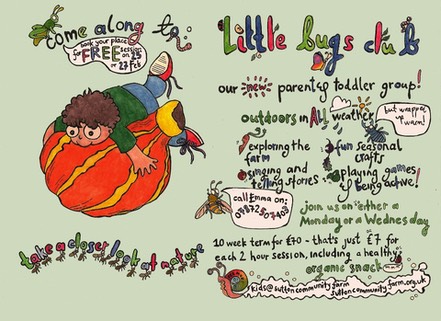 come along to:
book your place
for FREE session
on 25
or 27 Feb
take a closer look at nature
Little bugs club
our new parent & toddler group!
outdoors in ALL weather
but wrapped up warm!
exploring the farm
fun seasonal crafts
singing and telling stories
playing games & being active!
call Emma on:
join us on either a
Monday or a Wednesday
10 week term for £70 - that's just £7 for
each 2 hour session, including a healthy
organic snack
kids@suttoncommunityfarm
suttoncommunityfarm.org.uk